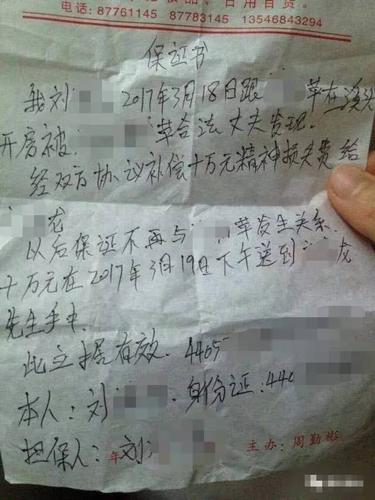 日用百货。
87761145 87783145 13546843294
保证书
我刘 2017年3月18日跟 草在溪头
开房被 草合法丈夫发现.
经双方协议补偿十万元精神损失费给
龙
以后保证不再与 草发生关系.
十万元在2017年3月19日下午送到 龙
先生手中.
此立据有效. 4405
本人:刘 身份证:440
担保人:年刘
主办:周勤彬